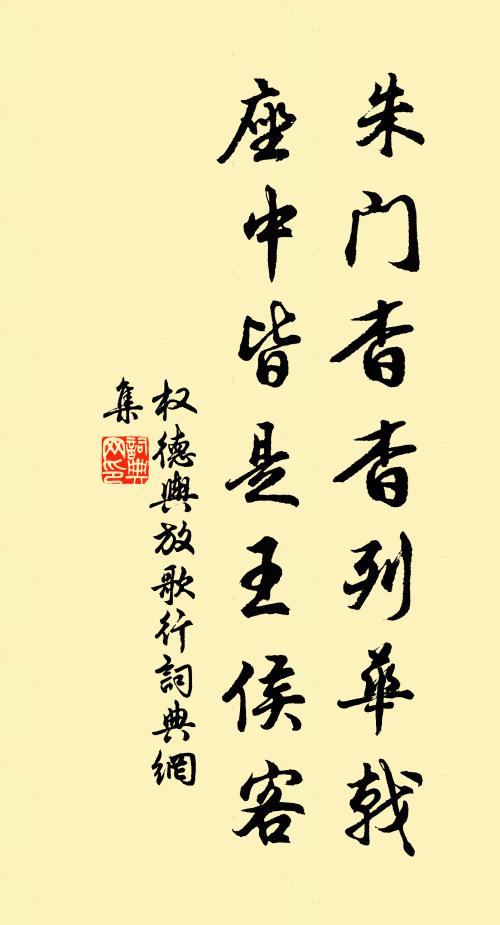 朱门杳杳列華戟
座中皆是王侯客
权德輿放歌行詞典網
集
詞典网印